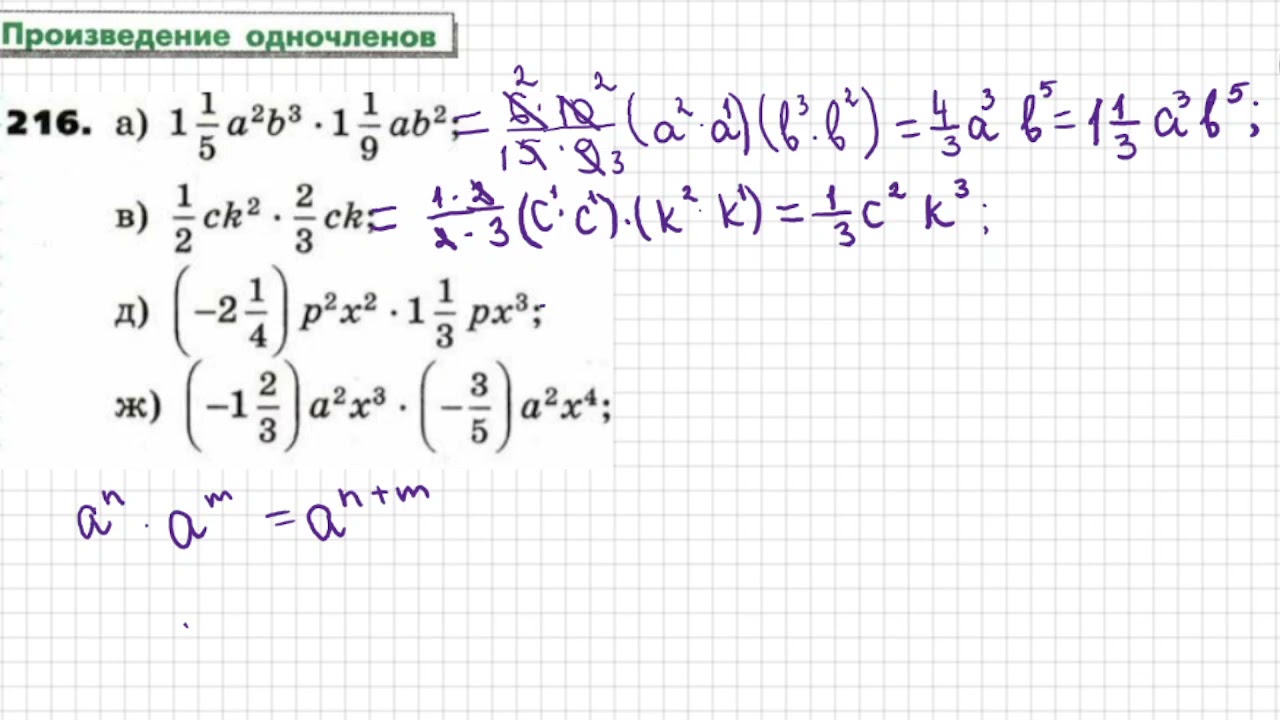 Произведение одночленов
216. а) 1 1/5 a²b³ · 1 1/9 ab²; = 6 · 10 / 5 · 9 2 2 1 3 (a² · a¹)(b³ · b²) = 4/3 a³ b⁵ = 1 1/3 a³ b⁵;
в) 1/2 ck² · 2/3 ck; = 1 · 2 / 2 · 3 (c¹ · c¹) · (k² · k¹) = 1/3 c² k³;
д) (−2 1/4) p²x² · 1 1/3 px³;
ж) (−1 2/3) a²x³ · (−3/5) a²x⁴;
aⁿ · aᵐ = aⁿ⁺ᵐ